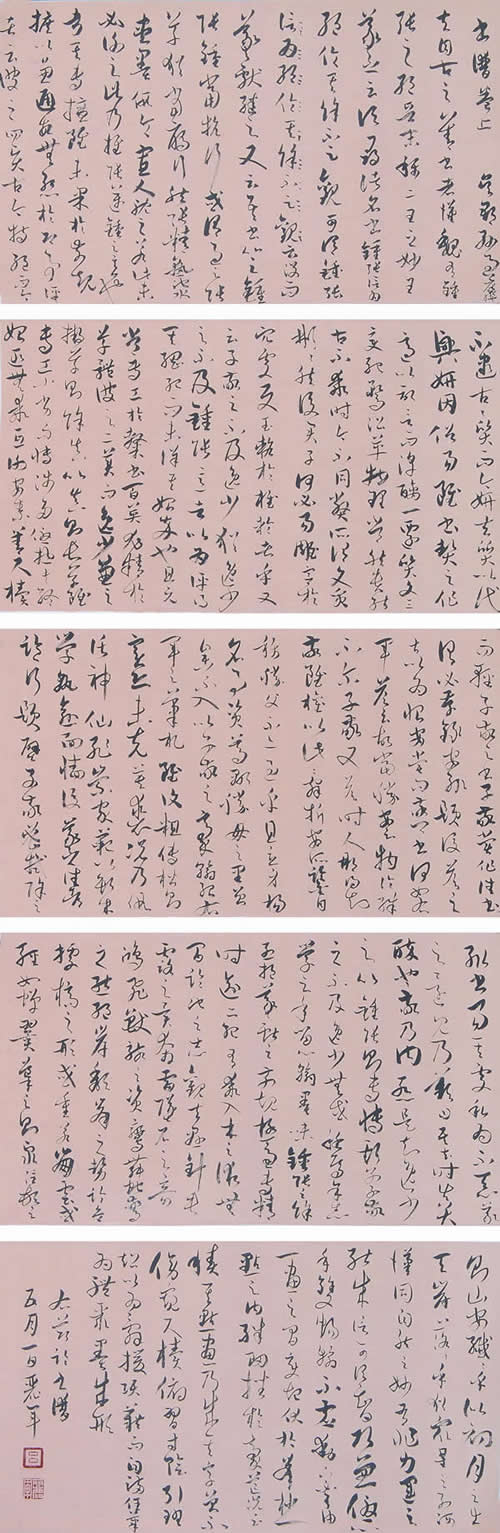 書譜卷上 吳郡孫過庭
夫自古之善書者漢魏有鍾
張之絕晉末稱二王之妙王
羲之云頃尋諸名書鍾張信為
絕倫其餘不足觀可謂鍾張
信為絕倫其餘不足觀云沒而
羲獻繼之又云吾書比之鍾
張鍾當抗行或謂過之張
草猶當雁行然張精熟池
水盡墨假令寡人耽之若此未
必謝之此乃推張邁鍾之意也
考其專擅雖未果於前規
摭以兼通故無慚於即事評
者云彼之四賢古今特絕而今
不逮古古質而今妍夫質以代
興妍因俗易雖書契之作
適以記言而淳醨一遷質文三
變馳騖沿革物理常然貴能
古不乖時今不同弊所謂文質
彬彬然後君子何必易雕宮於
穴處反玉輅於椎輪者乎又
云子敬之不及逸少猶逸少
之不及鍾張意者以為評得
其綱紀而未詳其始卒也且元
常專工於隸書百英尤精於
草體彼之二美而逸少兼之
擬草則餘真比真則長草雖
專工小劣而博涉多優總其終
始匪無乖互謝安素善尺牘
而輕子敬之書子敬嘗作佳書
與之謂必存錄安輒題後答之
甚以為恨安嘗問敬卿書何如右
軍答云故當勝安云物論殊
不爾子敬又答時人那得知
敬雖權以此辭折安所鑒自
稱勝父不亦過乎且立身揚
名事資尊顯勝母之里曾
參不入以子敬之豪翰紹右
軍之筆札雖復粗傳楷則
實恐未克箕裘況乃假
託神仙恥崇家範以斯成
學孰愈面牆後羲之往都
臨行題壁子敬密拭除之
輒書易其處私為不惡羲
之還見乃歎曰吾去時真大
醉也敬乃內慚是知逸少
之比鍾張則專博斯別子敬
之不及逸少無或疑焉余志
學之年留心翰墨味鍾張之餘
烈挹羲獻之前規極慮專精
時逾二紀有乖入木之術無
間臨池之志觀夫懸針垂
露之異奔雷墜石之奇
鴻飛獸駭之資鸞舞蛇驚
之態絕岸頹峰之勢臨危
據槁之形或重若崩雲或
輕如蟬翼導之則泉注頓之
則山安纖纖乎似初月之出
天崖落落乎猶眾星之列河
漢同自然之妙有非力運之
能成信可謂智巧兼優心
手雙暢翰不虛動下必有由
一畫之間變起伏於峰杪一
點之內殊衄挫於毫芒況云
積其點畫乃成其字曾不
傍窺尺牘俯習寸陰引班
超以為辭援項籍而自滿任筆
為體聚墨成形
右節臨書譜
五月一日